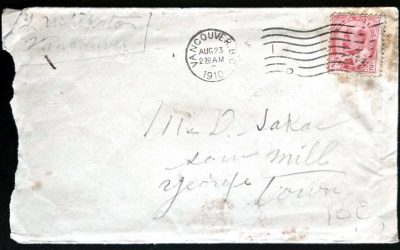 Vancouver
VANCOUVER, B.C.
AUG 23
2 30 AM
1910
2 2
Mr D. Sakai
saw mill
george Town
B.C.